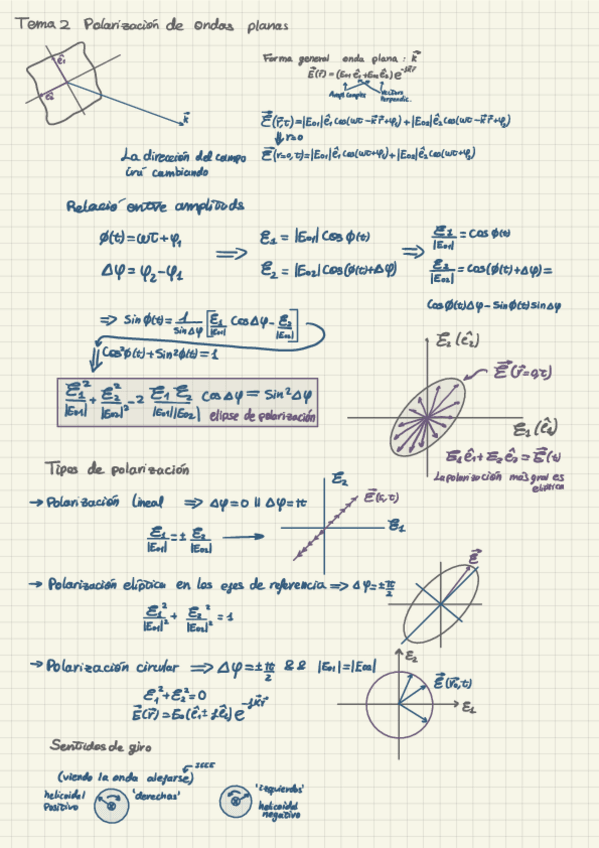 Tema 2 Polarización de ondas planas
ê₁
ê₂
k⃗
Forma general onda plana : k⃗
E⃗(r⃗) = (E₀₁ ê₁ + E₀₂ ê₂) e^-jk⃗r⃗
Amps complex
Vectors
Perpendic.
ℰ⃗(r⃗,t) = |E₀₁| ê₁ cos(ωt - k⃗r⃗ + φ₁) + |E₀₂| ê₂ cos(ωt - k⃗r⃗ + φ₂)
⇓ r=0
ℰ⃗(r=0,t) = |E₀₁| ê₁ cos(ωt+φ₁) + |E₀₂| ê₂ cos(ωt+φ₂)
La dirección del campo
irá cambiando
Relació entre amplituds
ϕ(t) = ωt + φ₁ ⇒ ℰ₁ = |E₀₁| Cos ϕ(t) ⇒ ℰ₁/|E₀₁| = Cos ϕ(t)
Δφ = φ₂ - φ₁ ℰ₂ = |E₀₂| Cos(ϕ(t)+Δφ) ℰ₂/|E₀₂| = Cos(ϕ(t)+Δφ) =
Cosϕ(t)Δφ - Sinϕ(t)SinΔφ
⇒ Sin ϕ(t) = 1/sinΔφ [ℰ₁/|E₀₁| CosΔφ - ℰ₂/|E₀₂|]
Cos²ϕ(t) + Sin²ϕ(t) = 1
ℰ₁²/|E₀₁| + ℰ₂²/|E₀₂|² - 2 ℰ₁ ℰ₂/|E₀₁||E₀₂| CosΔφ = Sin²Δφ
elipse de polarización
ℰ₂(ê₂)
ℰ⃗(r⃗=0,t)
ℰ₁(ê₁)
ℰ₁ê₁ + ℰ₂ê₂ = ℰ⃗(t)
La polarización más gral es
elíptica
Tipos de polarización
→ Polarización lineal ⇒ Δφ = 0 || Δφ = π
ℰ₁/|E₀₁| = ± ℰ₂/|E₀₂| →
ℰ₂
ℰ⃗(r,t)
ℰ₁
→ Polarización elíptica en los ejes de referencia ⇒ Δφ = ± π/2
ℰ₁²/|E₀₁|² + ℰ₂²/|E₀₂|² = 1
ℰ⃗
→ Polarización circular ⇒ Δφ = ± π/2 && |E₀₁| = |E₀₂|
ℰ₁² + ℰ₂² = 0
E⃗(r⃗) = E₀(ê₁ ± jê₂) e^-jk⃗r⃗
ℰ₂
ℰ⃗(r₀,t)
ℰ₁
Sentidos de giro
(viendo la onda alejarse) IEEE
helicoidal
positivo
'derechas'
'izquierdas'
helicoidal
negativo